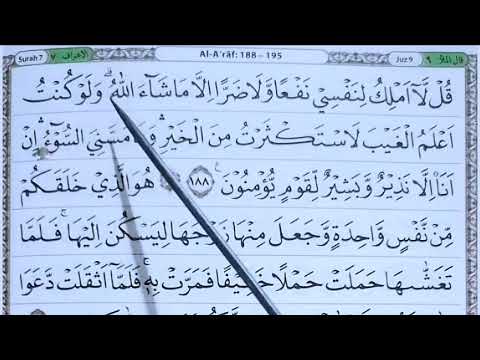 Surah 7 الاعراف ٧ Al-A'râf: 188 – 195 Juz 9 قال الملا ٩
قُلْ لَّآ اَمْلِكُ لِنَفْسِيْ نَفْعًا وَّلَا ضَرًّا اِلَّا مَا شَآءَ اللّٰهُ ۗ وَلَوْ كُنْتُ
اَعْلَمُ الْغَيْبَ لَاسْتَكْثَرْتُ مِنَ الْخَيْرِ ۛ وَمَا مَسَّنِيَ السُّوْٓءُ ۛ اِنْ
اَنَا۠ اِلَّا نَذِيْرٌ وَّبَشِيْرٌ لِّقَوْمٍ يُّؤْمِنُوْنَ ۝١٨٨ هُوَ الَّذِيْ خَلَقَكُمْ
مِّنْ نَّفْسٍ وَّاحِدَةٍ وَّجَعَلَ مِنْهَا زَوْجَهَا لِيَسْكُنَ اِلَيْهَا ۚ فَلَمَّا
تَغَشّٰىهَا حَمَلَتْ حَمْلًا خَفِيْفًا فَمَرَّتْ بِهٖ ۚ فَلَمَّآ اَثْقَلَتْ دَّعَوَا